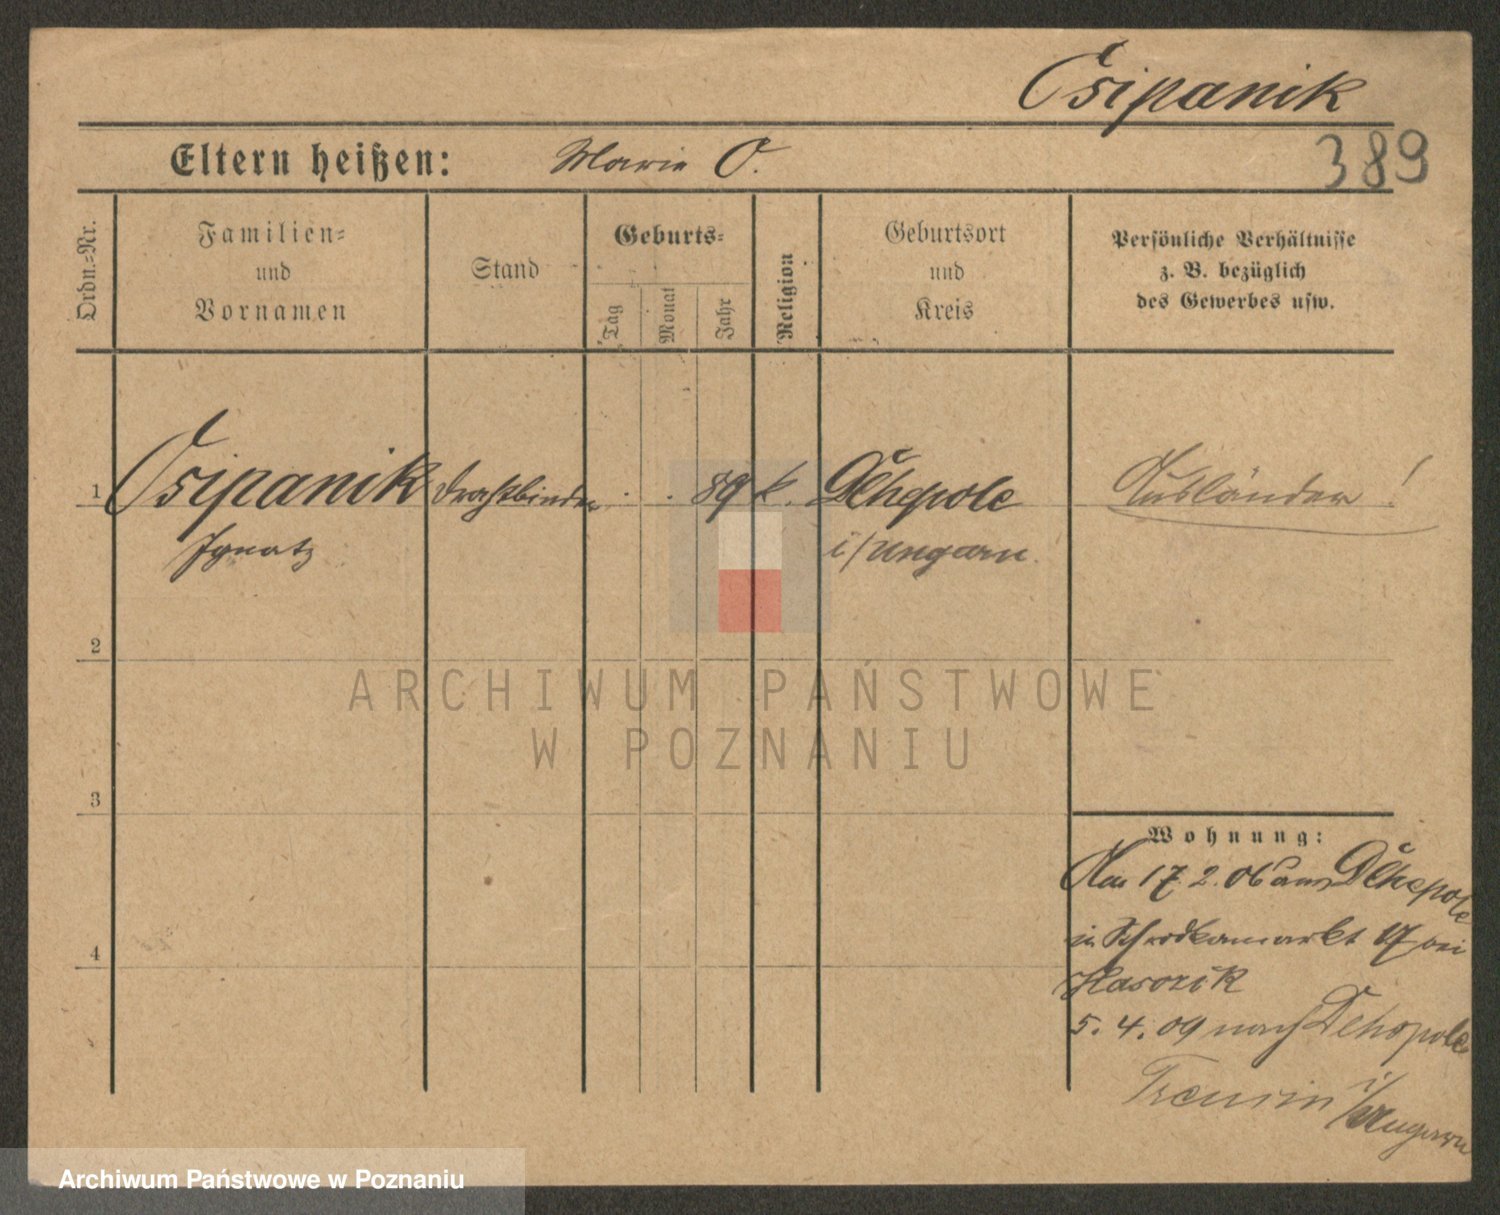 Csipanik
389
Eltern heißen: Marie C.
Ordn.-Nr.
Familien-
und
Vornamen
Stand
Geburts-
Tag
Monat
Jahr
Religion
Geburtsort
und
Kreis
Persönliche Verhältnisse
z. B. bezüglich
des Gewerbes usw.
1 Csipanik Drahtbinder . . 89 k. Dlhepole Ausländer!
Ignatz i/Ungarn.
2
3
4
Wohnung:
17. 2. 06 aus Dlhepole
in Schrodkamarkt 17 bei
Hasozik
5. 4. 09 nach Dlhepole
Trencsin i/Ungarn
ARCHIWUM PAŃSTWOWE
W POZNANIU
Archiwum Państwowe w Poznaniu